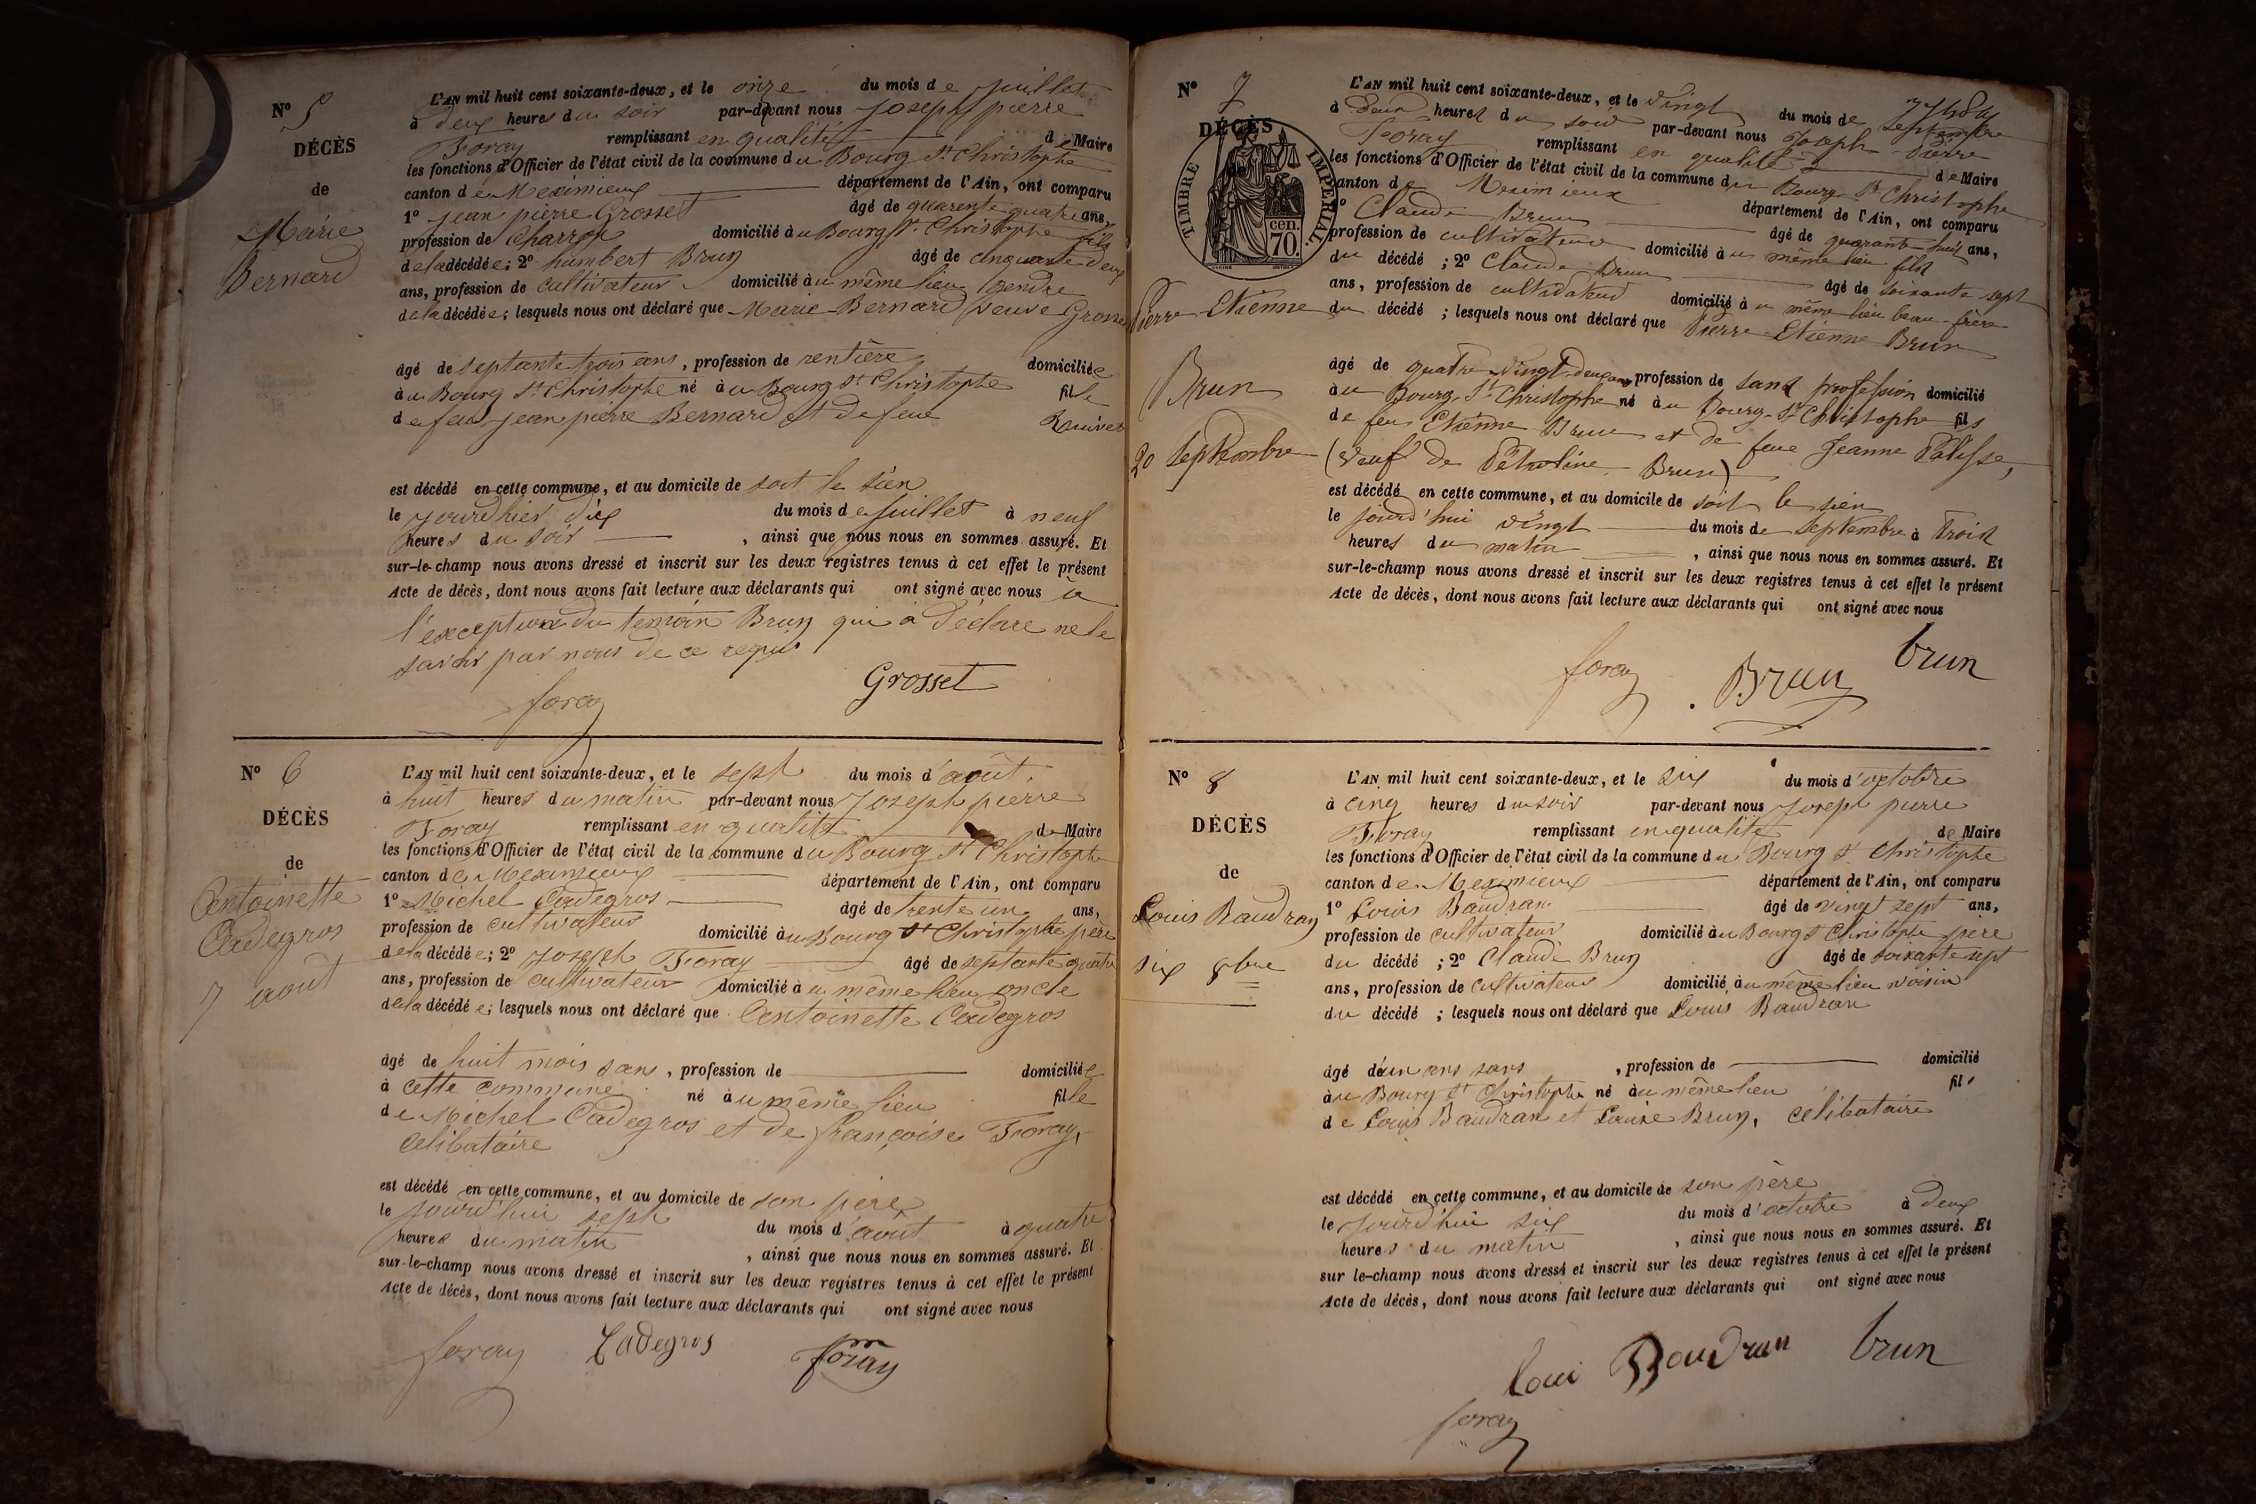 Nº 5
DÉCÈS
de
Marie
Bernard
L'AN mil huit cent soixante-deux, et le onze du mois de Juillet
à deux heures du soir par-devant nous Joseph pierre
Foray remplissant en qualité de Maire
les fonctions d'Officier de l'état civil de la commune du Bourg St Christophe
canton de Meximieux département de l'Ain, ont comparu
1º jean pierre Grosset âgé de quarente quatre ans,
profession de charron domicilié au Bourg St Christophe fils
de la décédée; 2º humbert Brun âgé de cinquante deux
ans, profession de cultivateur domicilié au même lieu gendre
de la décédée; lesquels nous ont déclaré que Marie Bernard veuve Grosset
âgé de septante trois ans, profession de rentière domiciliée
à u Bourg St Christophe né à u Bourg St Christophe fille
de feu jean pierre Bernard et de feue
est décédé en cette commune, et au domicile de soit le sien
le jourd'hier dix du mois de Juillet à neuf
heures du soir, ainsi que nous nous en sommes assuré. Et
sur-le-champ nous avons dressé et inscrit sur les deux registres tenus à cet effet le présent
Acte de décès, dont nous avons fait lecture aux déclarants qui ont signé avec nous à
l'exception du temoin Brun qui a déclaré ne le
savoir par nous de ce requis
foray Grosset
Nº 6
DÉCÈS
de
Antoinette
Cadegros
7 août
L'AN mil huit cent soixante-deux, et le sept du mois d'août
à huit heures du matin par-devant nous Joseph pierre
Foray remplissant en qualité de Maire
les fonctions d'Officier de l'état civil de la commune du Bourg St Christophe
canton de Meximieux département de l'Ain, ont comparu
1º Michel Cadegros âgé de trente un ans,
profession de cultivateur domicilié au Bourg St Christophe père
de la décédée; 2º Joseph Foray âgé de septante quatre
ans, profession de cultivateur domicilié à u même lieu oncle
de la décédée; lesquels nous ont déclaré que Antoinette Cadegros
âgé de huit mois sans, profession de domiciliée
à cette commune né à u même lieu fille
de Michel Cadegros et de françoise Foray,
celibataire
est décédé en cette commune, et au domicile de son père
le jourd'hui sept du mois d'août à quatre
heures du matin, ainsi que nous nous en sommes assuré. Et
sur-le-champ nous avons dressé et inscrit sur les deux registres tenus à cet effet le présent
Acte de décès, dont nous avons fait lecture aux déclarants qui ont signé avec nous
foray Cadegros foray
Nº 7
DÉCÈS
de
TIMBRE IMPÉRIAL.
70. cen.
Pierre Etienne
Brun
20 septembre
L'AN mil huit cent soixante-deux, et le vingt du mois de septembre
à deux heures du soir par-devant nous Joseph Pierre
Foray remplissant en qualité de Maire
les fonctions d'Officier de l'état civil de la commune du Bourg St Christophe
canton de Meximieux département de l'Ain, ont comparu
1º Claude Brun âgé de quarante huit ans,
profession de cultivateur domicilié à u même lieu fils
du décédé; 2º Claude Brun âgé de soixante sept
ans, profession de cultivateur domicilié à u même lieu beau-frère
du décédé; lesquels nous ont déclaré que Pierre Etienne Brun
âgé de quatre-vingt-deux ans profession de sans profession domicilié
à u Bourg St Christophe né à u Bourg St Christophe fils
de feu Etienne Brun et de feue Jeanne Palisse,
(veuf de Pétroline Brun)
est décédé en cette commune, et au domicile de soit le sien
le jourd'hui vingt du mois de septembre à trois
heures du matin, ainsi que nous nous en sommes assuré. Et
sur-le-champ nous avons dressé et inscrit sur les deux registres tenus à cet effet le présent
Acte de décès, dont nous avons fait lecture aux déclarants qui ont signé avec nous
foray Brun brun
Nº 8
DÉCÈS
de
Louis Baudran
six 8bre
L'AN mil huit cent soixante-deux, et le six du mois d'octobre
à cinq heures du soir par-devant nous Joseph pierre
Foray remplissant en qualité de Maire
les fonctions d'Officier de l'état civil de la commune du Bourg St Christophe
canton de Meximieux département de l'Ain, ont comparu
1º Louis Baudran âgé de vingt sept ans,
profession de cultivateur domicilié à u Bourg St Christophe père
du décédé; 2º Claude Brun âgé de soixante sept
ans, profession de cultivateur domicilié à u même lieu voisin
du décédé; lesquels nous ont déclaré que Louis Baudran
âgé d'un ans sans, profession de domicilié
à u Bourg St Christophe né à u même lieu fils
de Louis Baudran et Louise Brun, celibataire
est décédé en cette commune, et au domicile de son père
le jourd'hui six du mois d'octobre à deux
heures du matin, ainsi que nous nous en sommes assuré. Et
sur le-champ nous avons dressé et inscrit sur les deux registres tenus à cet effet le présent
Acte de décès, dont nous avons fait lecture aux déclarants qui ont signé avec nous
loui Baudran brun
foray